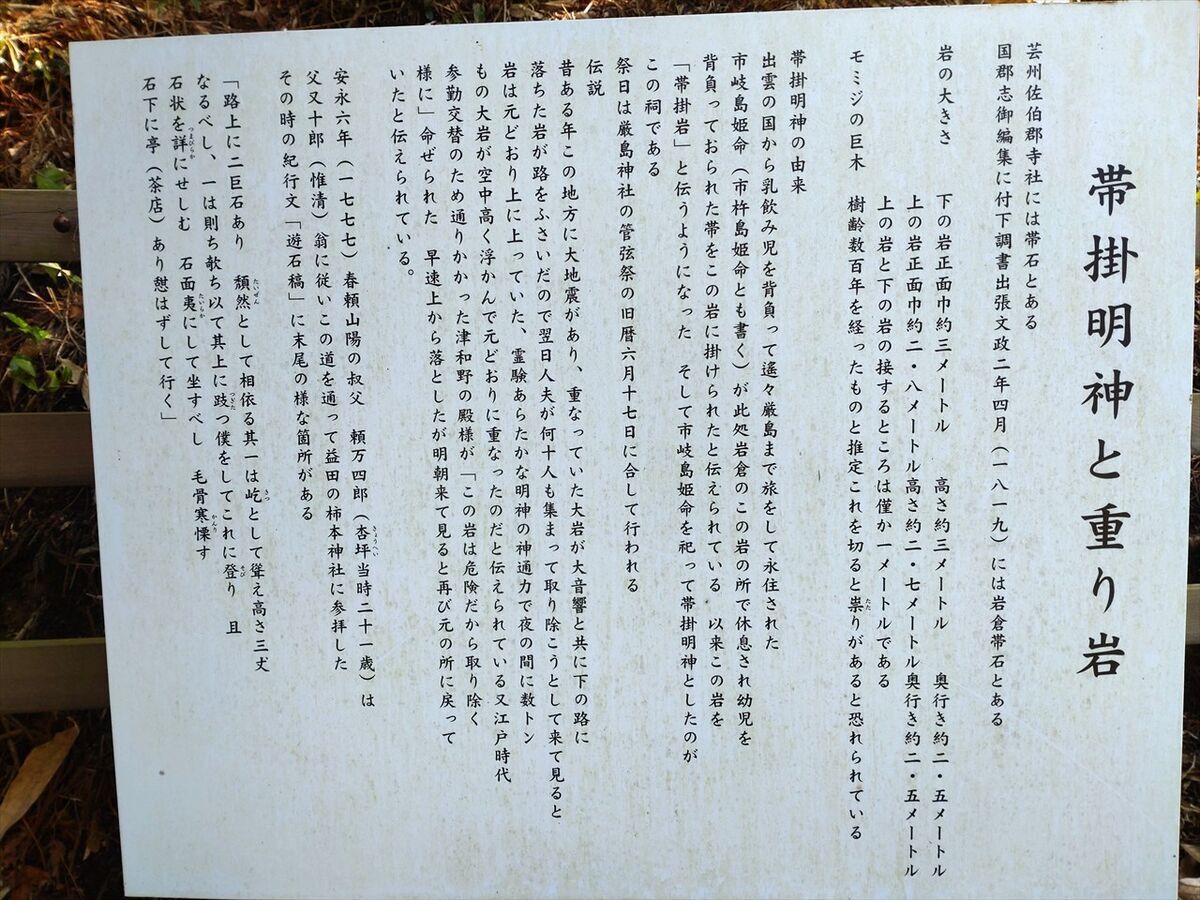 帯掛明神と重り岩
芸州佐伯郡寺社には帯石とある
国郡志御編集に付下調書出張文政二年四月(一八一九)には岩倉帯石とある
岩の大きさ 下の岩正面巾約三メートル 高さ約三メートル 奥行き約二・五メートル
上の岩正面巾約二・八メートル高さ約二・七メートル奥行き約二・五メートル
上の岩と下の岩の接するところは僅か一メートルである
モミジの巨木 樹齢数百年を経ったものと推定これを切ると祟りがあると恐れられている
帯掛明神の由来
出雲の国から乳飲み児を背負って遙々厳島まで旅をして永住された
市岐島姫命(市杵島姫命とも書く)が此処岩倉のこの岩の所で休息され幼児を
背負っておられた帯をこの岩に掛けられたと伝えられている 以来この岩を
「帯掛岩」と伝うようになった そして市岐島姫命を祀って帯掛明神としたのが
この祠である
祭日は厳島神社の管弦祭の旧暦六月十七日に合して行われる
伝説
昔ある年この地方に大地震があり、重なっていた大岩が大音響と共に下の路に
落ちた岩が路をふさいだので翌日人夫が何十人も集まって取り除こうとして来て見ると
岩は元どおり上に上っていた、霊験あらたかな明神の神通力で夜の間に数トン
もの大岩が空中高く浮かんで元どおりに重なったのだと伝えられている又江戸時代
参勤交替のため通りかかった津和野の殿様が「この岩は危険だから取り除く
様に」命ぜられた 早速上から落としたが明朝来て見ると再び元の所に戻って
いたと伝えられている。
安永六年(一七七七)春頼山陽の叔父 頼万四郎(杏坪当時二十一歳)は
父又十郎(惟清)翁に従いこの道を通って益田の柿本神社に参拝した
その時の紀行文「遊石稿」に末尾の様な箇所がある
「路上に二巨石あり 頽然として相依る其一は屹として聳え高さ三丈
なるべし、一は則ち欹ち以て其上に跂つ僕をしてこれに登り 且
石状を詳にせしむ 石面夷にして坐すべし 毛骨寒慄す
石下に亭(茶店)あり憩はずして行く」